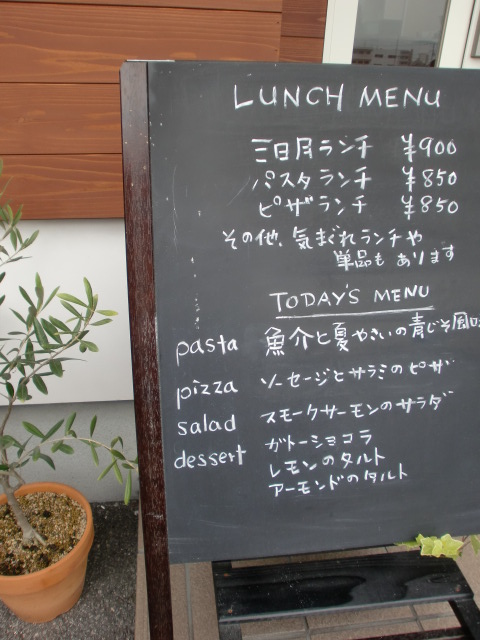 LUNCH MENU
三日月ランチ ¥900
パスタランチ ¥850
ピザランチ ¥850
その他、気まぐれランチや
単品も あります
TODAY'S MENU
pasta 魚介と夏やさいの青じそ風味
pizza ソーセージとサラミのピザ
salad スモークサーモンのサラダ
dessert ガトーショコラ
レモンのタルト
アーモンドのタルト